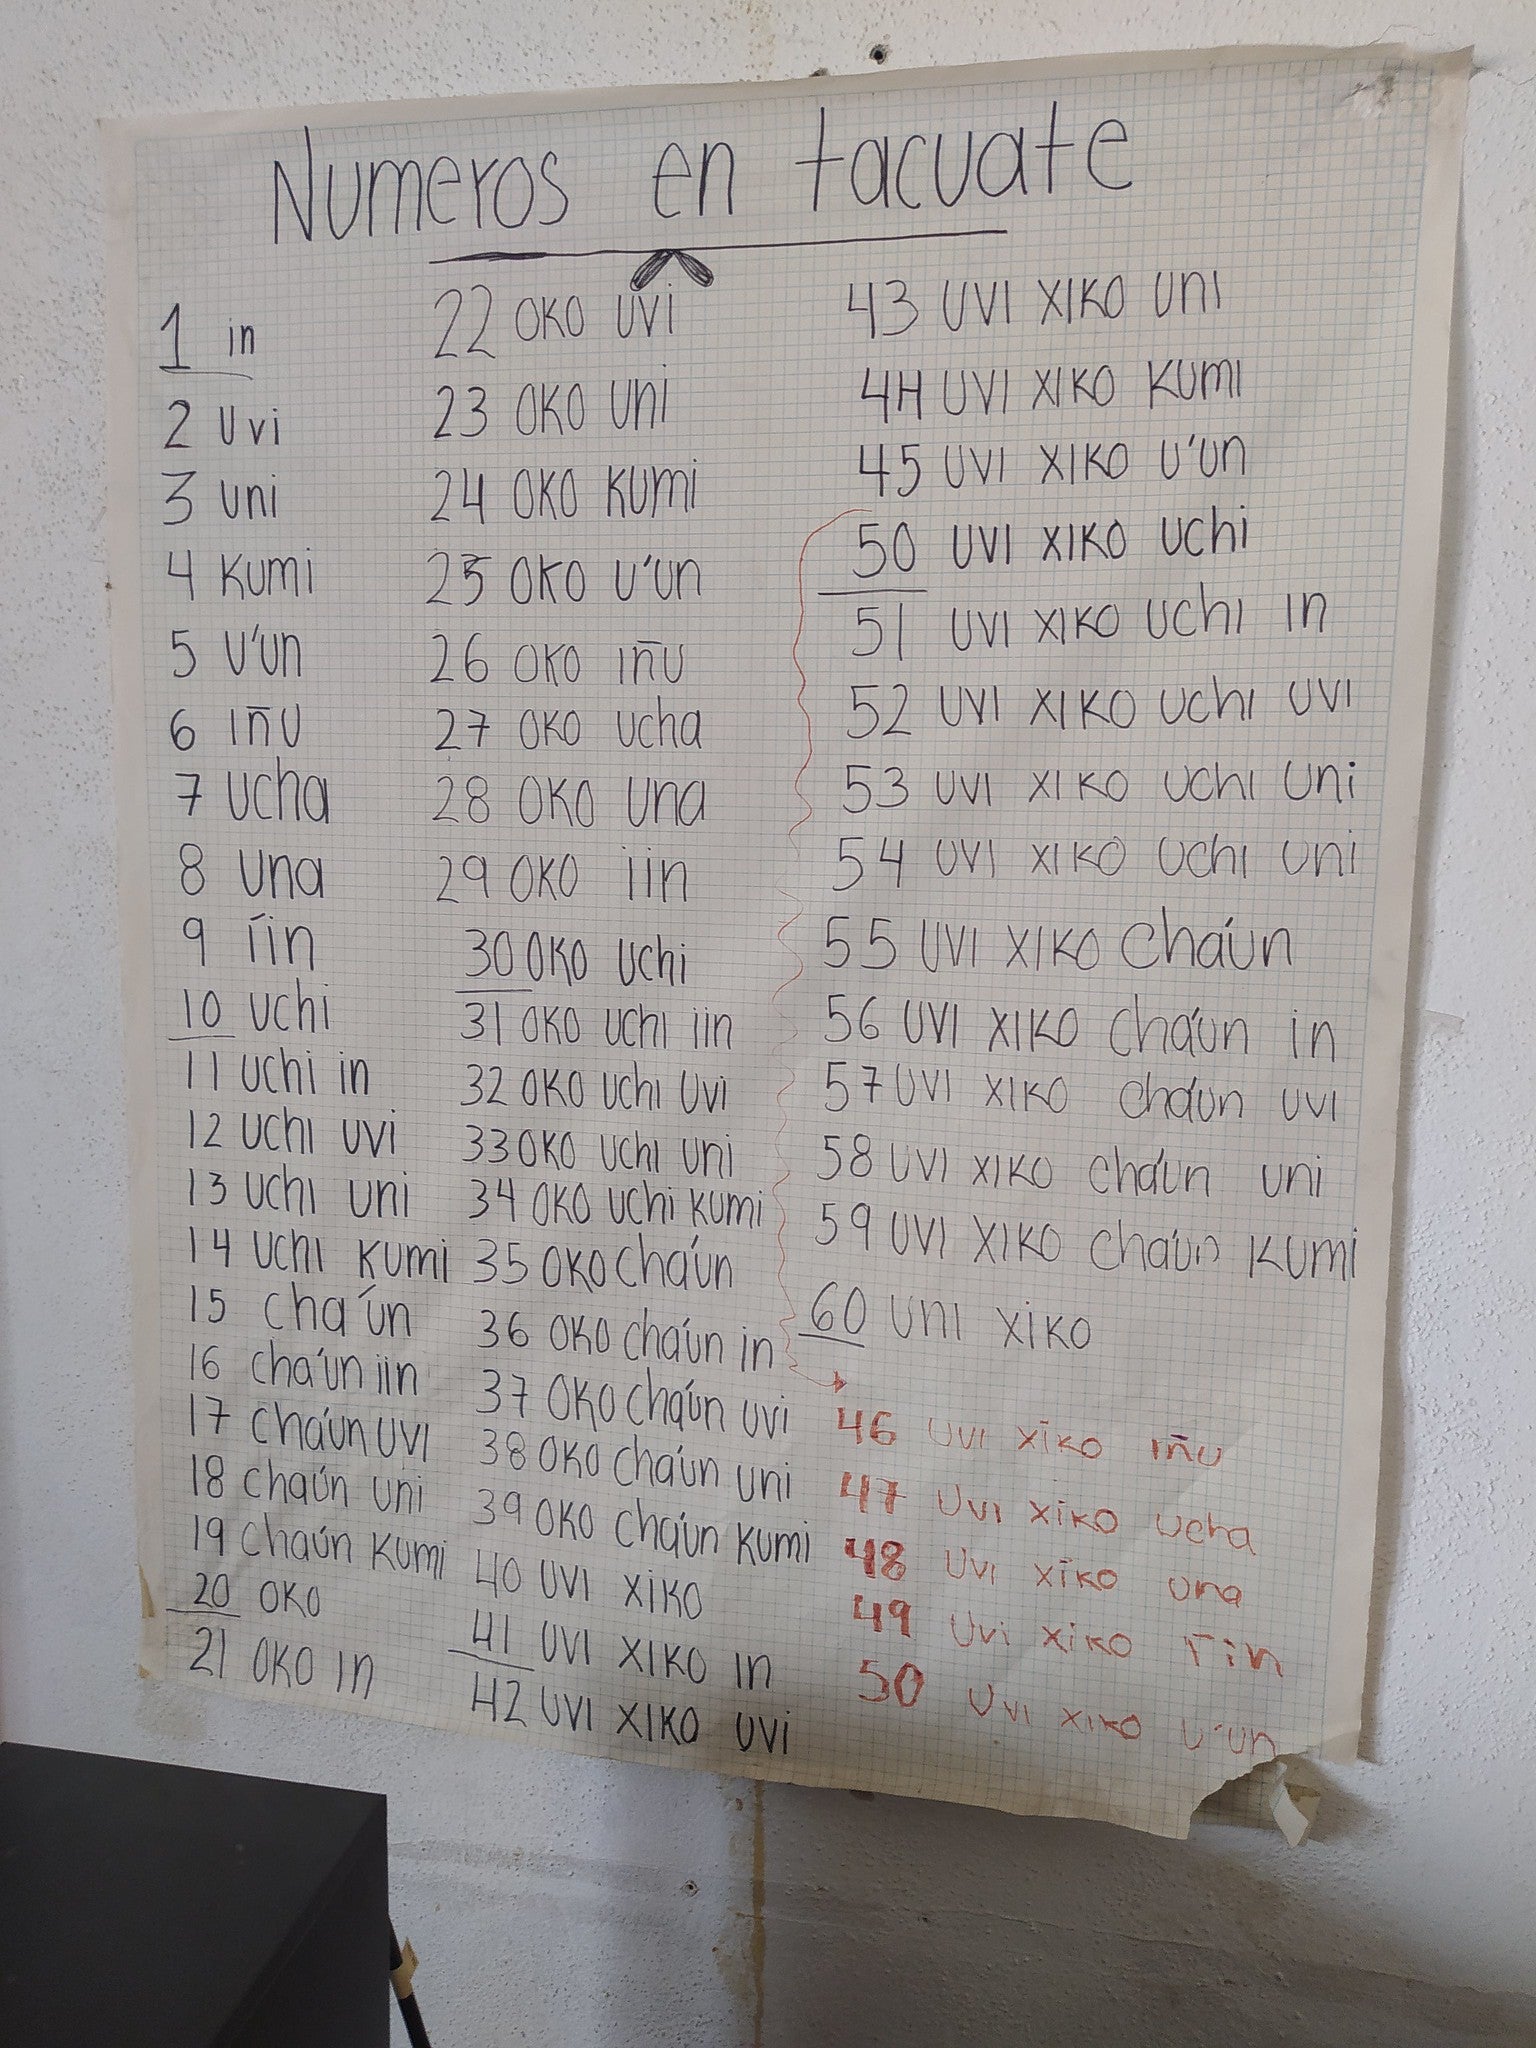 Numeros en tacuate
1 in
2 uvi
3 uni
4 kumi
5 u'un
6 iñu
7 ucha
8 una
9 íin
10 uchi
11 uchi in
12 uchi uvi
13 uchi uni
14 uchi kumi
15 cha'un
16 cha'un iin
17 cha'un uvi
18 cha'un uni
19 cha'un kumi
20 oko
21 oko in
22 oko uvi
23 oko uni
24 oko kumi
25 oko u'un
26 oko iñu
27 oko ucha
28 oko una
29 oko iin
30 oko uchi
31 oko uchi iin
32 oko uchi uvi
33 oko uchi uni
34 oko uchi kumi
35 oko cha'un
36 oko cha'un in
37 oko cha'un uvi
38 oko cha'un uni
39 oko cha'un kumi
40 uvi xiko
41 uvi xiko in
42 uvi xiko uvi
43 uvi xiko uni
44 uvi xiko kumi
45 uvi xiko u'un
50 uvi xiko uchi
51 uvi xiko uchi in
52 uvi xiko uchi uvi
53 uvi xiko uchi uni
54 uvi xiko uchi uni
55 uvi xiko cha'un
56 uvi xiko cha'un in
57 uvi xiko cha'un uvi
58 uvi xiko cha'un uni
59 uvi xiko cha'un kumi
60 uni xiko
46 uvi xiko iñu
47 uvi xiko ucha
48 uvi xiko una
49 uvi xiko íin
50 uvi xiko u'un